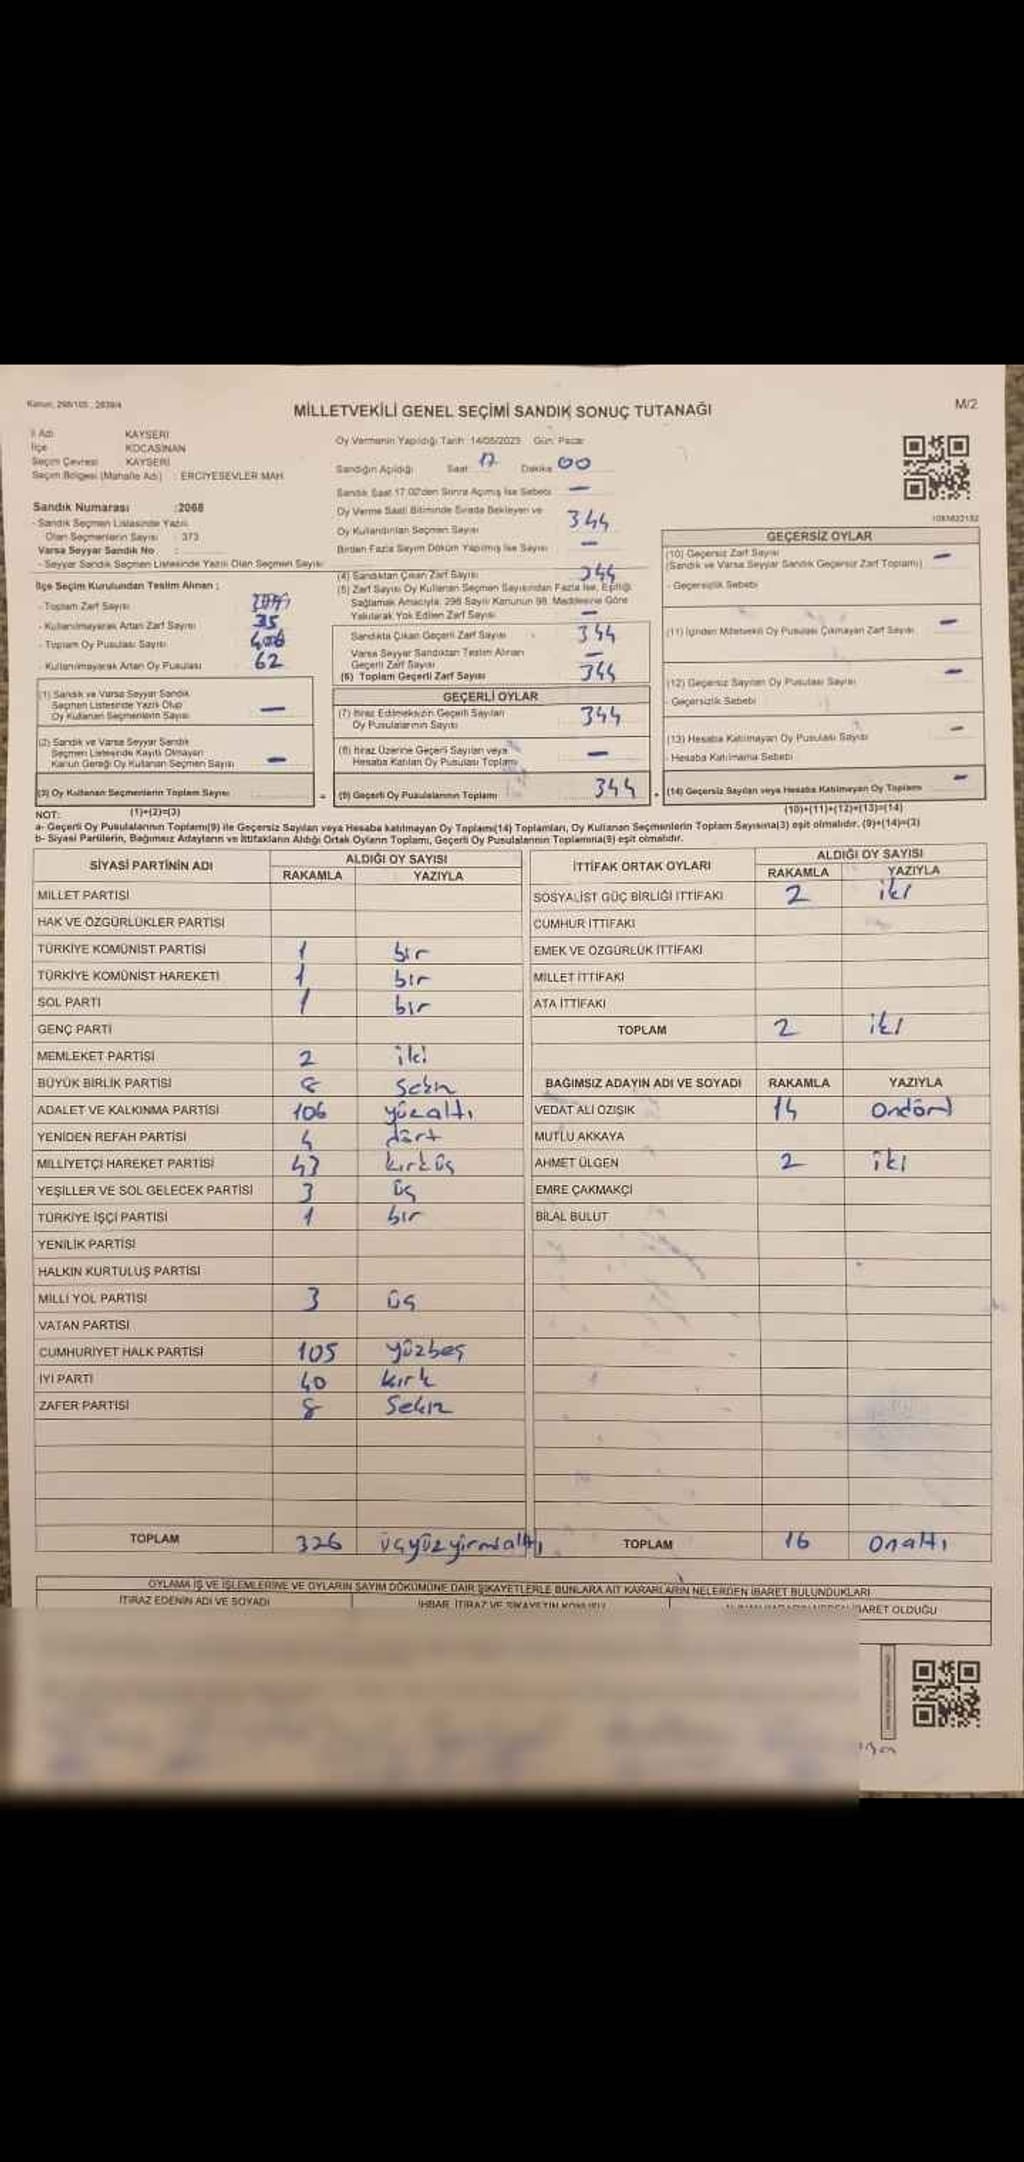 Kanun: 298/105 , 2839/4
MİLLETVEKİLİ GENEL SEÇİMİ SANDIK SONUÇ TUTANAĞI
M/2
İl Adı KAYSERİ
İlçe KOCASİNAN
Seçim Çevresi KAYSERİ
Seçim Bölgesi (Mahalle Adı) : ERCİYESEVLER MAH
Sandık Numarası :2068
- Sandık Seçmen Listesinde Yazılı
Olan Seçmenlerin Sayısı : 373
Varsa Seyyar Sandık No :
- Seyyar Sandık Seçmen Listesinde Yazılı Olan Seçmen Sayısı
İlçe Seçim Kurulundan Teslim Alınan ;
- Toplam Zarf Sayısı
- Kullanılmayarak Artan Zarf Sayısı 35
- Toplam Oy Pusulası Sayısı 406
- Kullanılmayarak Artan Oy Pusulası 62
(1) Sandık ve Varsa Seyyar Sandık
Seçmen Listesinde Yazılı Olup
Oy Kullanan Seçmenlerin Sayısı —
(2) Sandık ve Varsa Seyyar Sandık
Seçmen Listesinde Kayıtlı Olmayan
Kanun Gereği Oy Kullanan Seçmen Sayısı —
(3) Oy Kullanan Seçmenlerin Toplam Sayısı =
Oy Vermenin Yapıldığı Tarih: 14/05/2023 Gün: Pazar
Sandığın Açıldığı Saat 17 Dakika 00
Sandık Saat 17.00'den Sonra Açılmış İse Sebebi —
Oy Verme Saati Bitiminde Sırada Bekleyen ve
Oy Kullandırılan Seçmen Sayısı 344
Birden Fazla Sayım Döküm Yapılmış İse Sayısı —
(4) Sandıktan Çıkan Zarf Sayısı 344
(5) Zarf Sayısı Oy Kullanan Seçmen Sayısından Fazla İse, Eşitliği
Sağlamak Amacıyla, 298 Sayılı Kanunun 98. Maddesine Göre
Yakılarak Yok Edilen Zarf Sayısı —
Sandıkta Çıkan Geçerli Zarf Sayısı 344
Varsa Seyyar Sandıktan Teslim Alınan
Geçerli Zarf Sayısı —
(6) Toplam Geçerli Zarf Sayısı 344
GEÇERLİ OYLAR
(7) İtiraz Edilmeksizin Geçerli Sayılan
Oy Pusulalarının Sayısı 344
(8) İtiraz Üzerine Geçerli Sayılan veya
Hesaba Katılan Oy Pusulası Toplamı —
(9) Geçerli Oy Pusulalarının Toplamı 344 +
1085822182
GEÇERSİZ OYLAR
(10) Geçersiz Zarf Sayısı —
(Sandık ve Varsa Seyyar Sandık Geçersiz Zarf Toplamı)
- Geçersizlik Sebebi
(11) İçinden Milletvekili Oy Pusulası Çıkmayan Zarf Sayısı —
(12) Geçersiz Sayılan Oy Pusulası Sayısı —
- Geçersizlik Sebebi
(13) Hesaba Katılmayan Oy Pusulası Sayısı —
- Hesaba Katılmama Sebebi
(14) Geçersiz Sayılan veya Hesaba Katılmayan Oy Toplamı —
NOT: (1)+(2)=(3) (10)+(11)+(12)+(13)=(14)
a- Geçerli Oy Pusulalarının Toplamı(9) ile Geçersiz Sayılan veya Hesaba katılmayan Oy Toplamı(14) Toplamları, Oy Kullanan Seçmenlerin Toplam Sayısına(3) eşit olmalıdır. (9)+(14)=(3)
b- Siyasi Partilerin, Bağımsız Adayların ve İttifakların Aldığı Ortak Oyların Toplamı, Geçerli Oy Pusulalarının Toplamına(9) eşit olmalıdır.
SİYASİ PARTİNİN ADI ALDIĞI OY SAYISI
RAKAMLA YAZIYLA
MİLLET PARTİSİ
HAK VE ÖZGÜRLÜKLER PARTİSİ
TÜRKİYE KOMÜNİST PARTİSİ 1 bir
TÜRKİYE KOMÜNİST HAREKETİ 1 bir
SOL PARTİ 1 bir
GENÇ PARTİ
MEMLEKET PARTİSİ 2 iki
BÜYÜK BİRLİK PARTİSİ 8 Sekiz
ADALET VE KALKINMA PARTİSİ 106 yüzaltı
YENİDEN REFAH PARTİSİ 4 dört
MİLLİYETÇİ HAREKET PARTİSİ 43 kırküç
YEŞİLLER VE SOL GELECEK PARTİSİ 3 üç
TÜRKİYE İŞÇİ PARTİSİ 1 bir
YENİLİK PARTİSİ
HALKIN KURTULUŞ PARTİSİ
MİLLİ YOL PARTİSİ 3 üç
VATAN PARTİSİ
CUMHURİYET HALK PARTİSİ 105 yüzbeş
İYİ PARTİ 40 kırk
ZAFER PARTİSİ 8 Sekiz
TOPLAM 326 üçyüzyirmialtı
İTTİFAK ORTAK OYLARI ALDIĞI OY SAYISI
RAKAMLA YAZIYLA
SOSYALİST GÜÇ BİRLİĞİ İTTİFAKI 2 iki
CUMHUR İTTİFAKI
EMEK VE ÖZGÜRLÜK İTTİFAKI
MİLLET İTTİFAKI
ATA İTTİFAKI
TOPLAM 2 iki
BAĞIMSIZ ADAYIN ADI VE SOYADI RAKAMLA YAZIYLA
VEDAT ALİ ÖZIŞIK 14 Ondört
MUTLU AKKAYA
AHMET ÜLGEN 2 iki
EMRE ÇAKMAKÇİ
BİLAL BULUT
TOPLAM 16 Onaltı
OYLAMA İŞ VE İŞLEMLERİNE VE OYLARIN SAYIM DÖKÜMÜNE DAİR ŞİKAYETLERLE BUNLARA AİT KARARLARIN NELERDEN İBARET BULUNDUKLARI
İTİRAZ EDENİN ADI VE SOYADI İHBAR, İTİRAZ VE ŞİKAYETİN KONUSU İBARET OLDUĞU